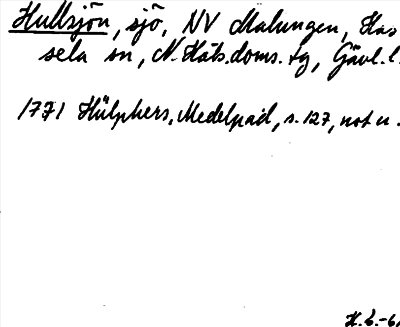 Hullsjön, sjö, NV Malungen, Has
sela sn, N. Häls. doms. tg, Gävl. l.
1771 Hülphers, Medelpad, s. 127, not u.
H. L. -6